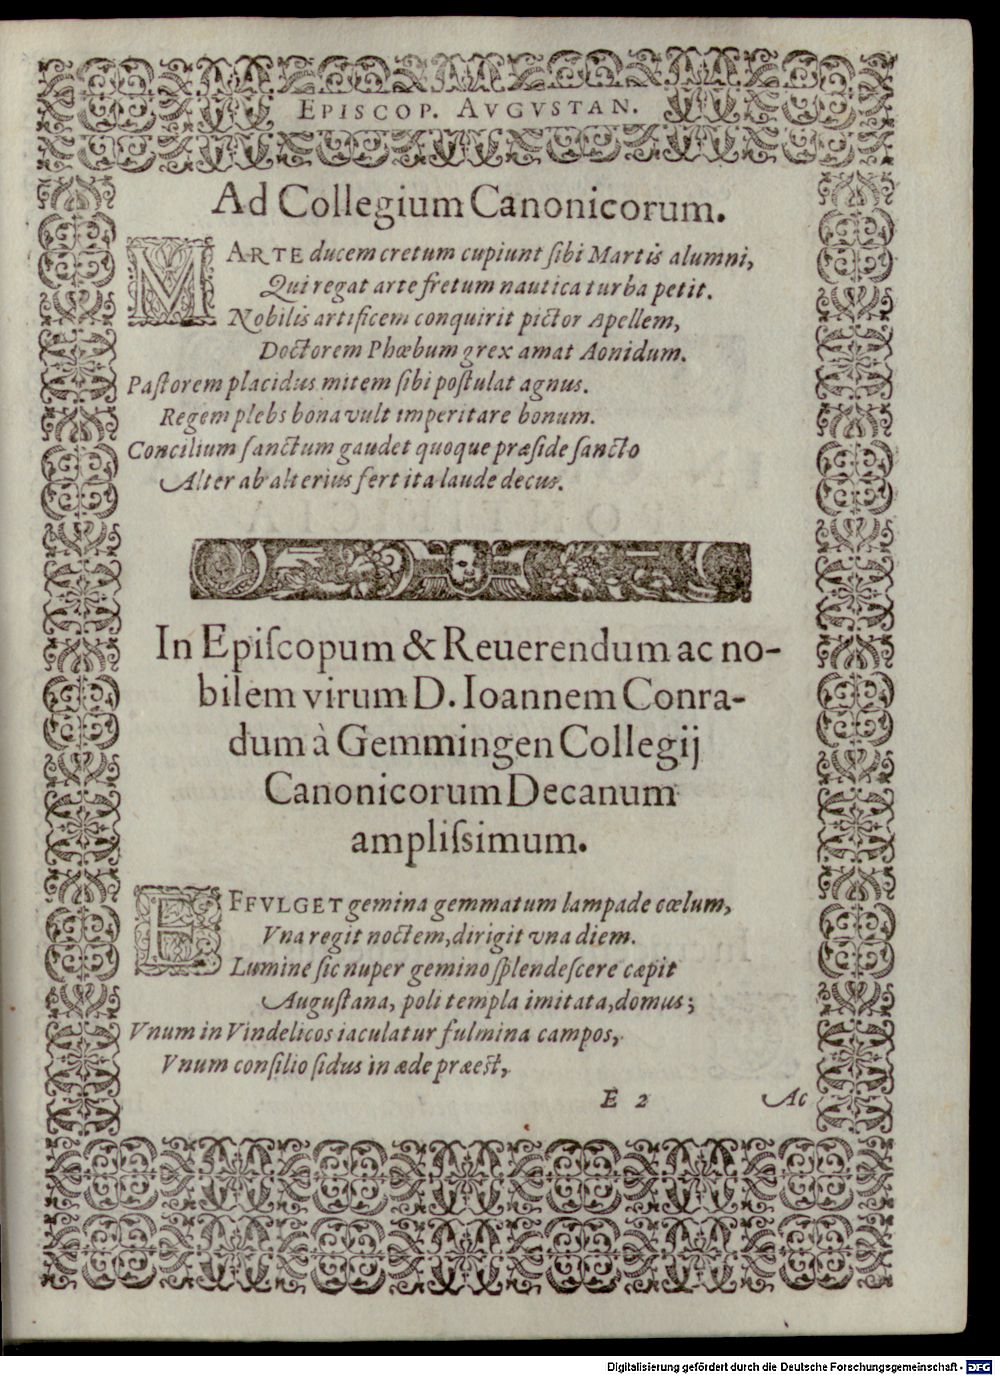 EPISCOP. AVGVSTAN.
Ad Collegium Canonicorum.
MARTE ducem cretum cupiunt ſibi Martis alumni,
Qui regat arte fretum nautica turba petit.
Nobilis artificem conquirit pictor Apellem,
Doctorem Phœbum grex amat Aonidum.
Paſtorem placidus mitem ſibi poſtulat agnus.
Regem plebs bona vult imperitare bonum.
Concilium ſanctum gaudet quoque præſide ſancto
Alter ab alterius fert ita laude decus.
In Epiſcopum & Reuerendum ac no-
bilem virum D. Ioannem Conra-
dum à Gemmingen Collegij
Canonicorum Decanum
ampliſsimum.
EFFVLGET gemina gemmatum lampade cœlum,
Vna regit noctem, dirigit vna diem.
Lumine ſic nuper gemino ſplendeſcere cæpit
Auguſtana, poli templa imitata, domus;
Vnum in Vindelicos iaculatur fulmina campos,
Vnum conſilio ſidus in æde præest,
E 2 Ac
Digitalisierung gefördert durch die Deutsche Forschungsgemeinschaft - DFG